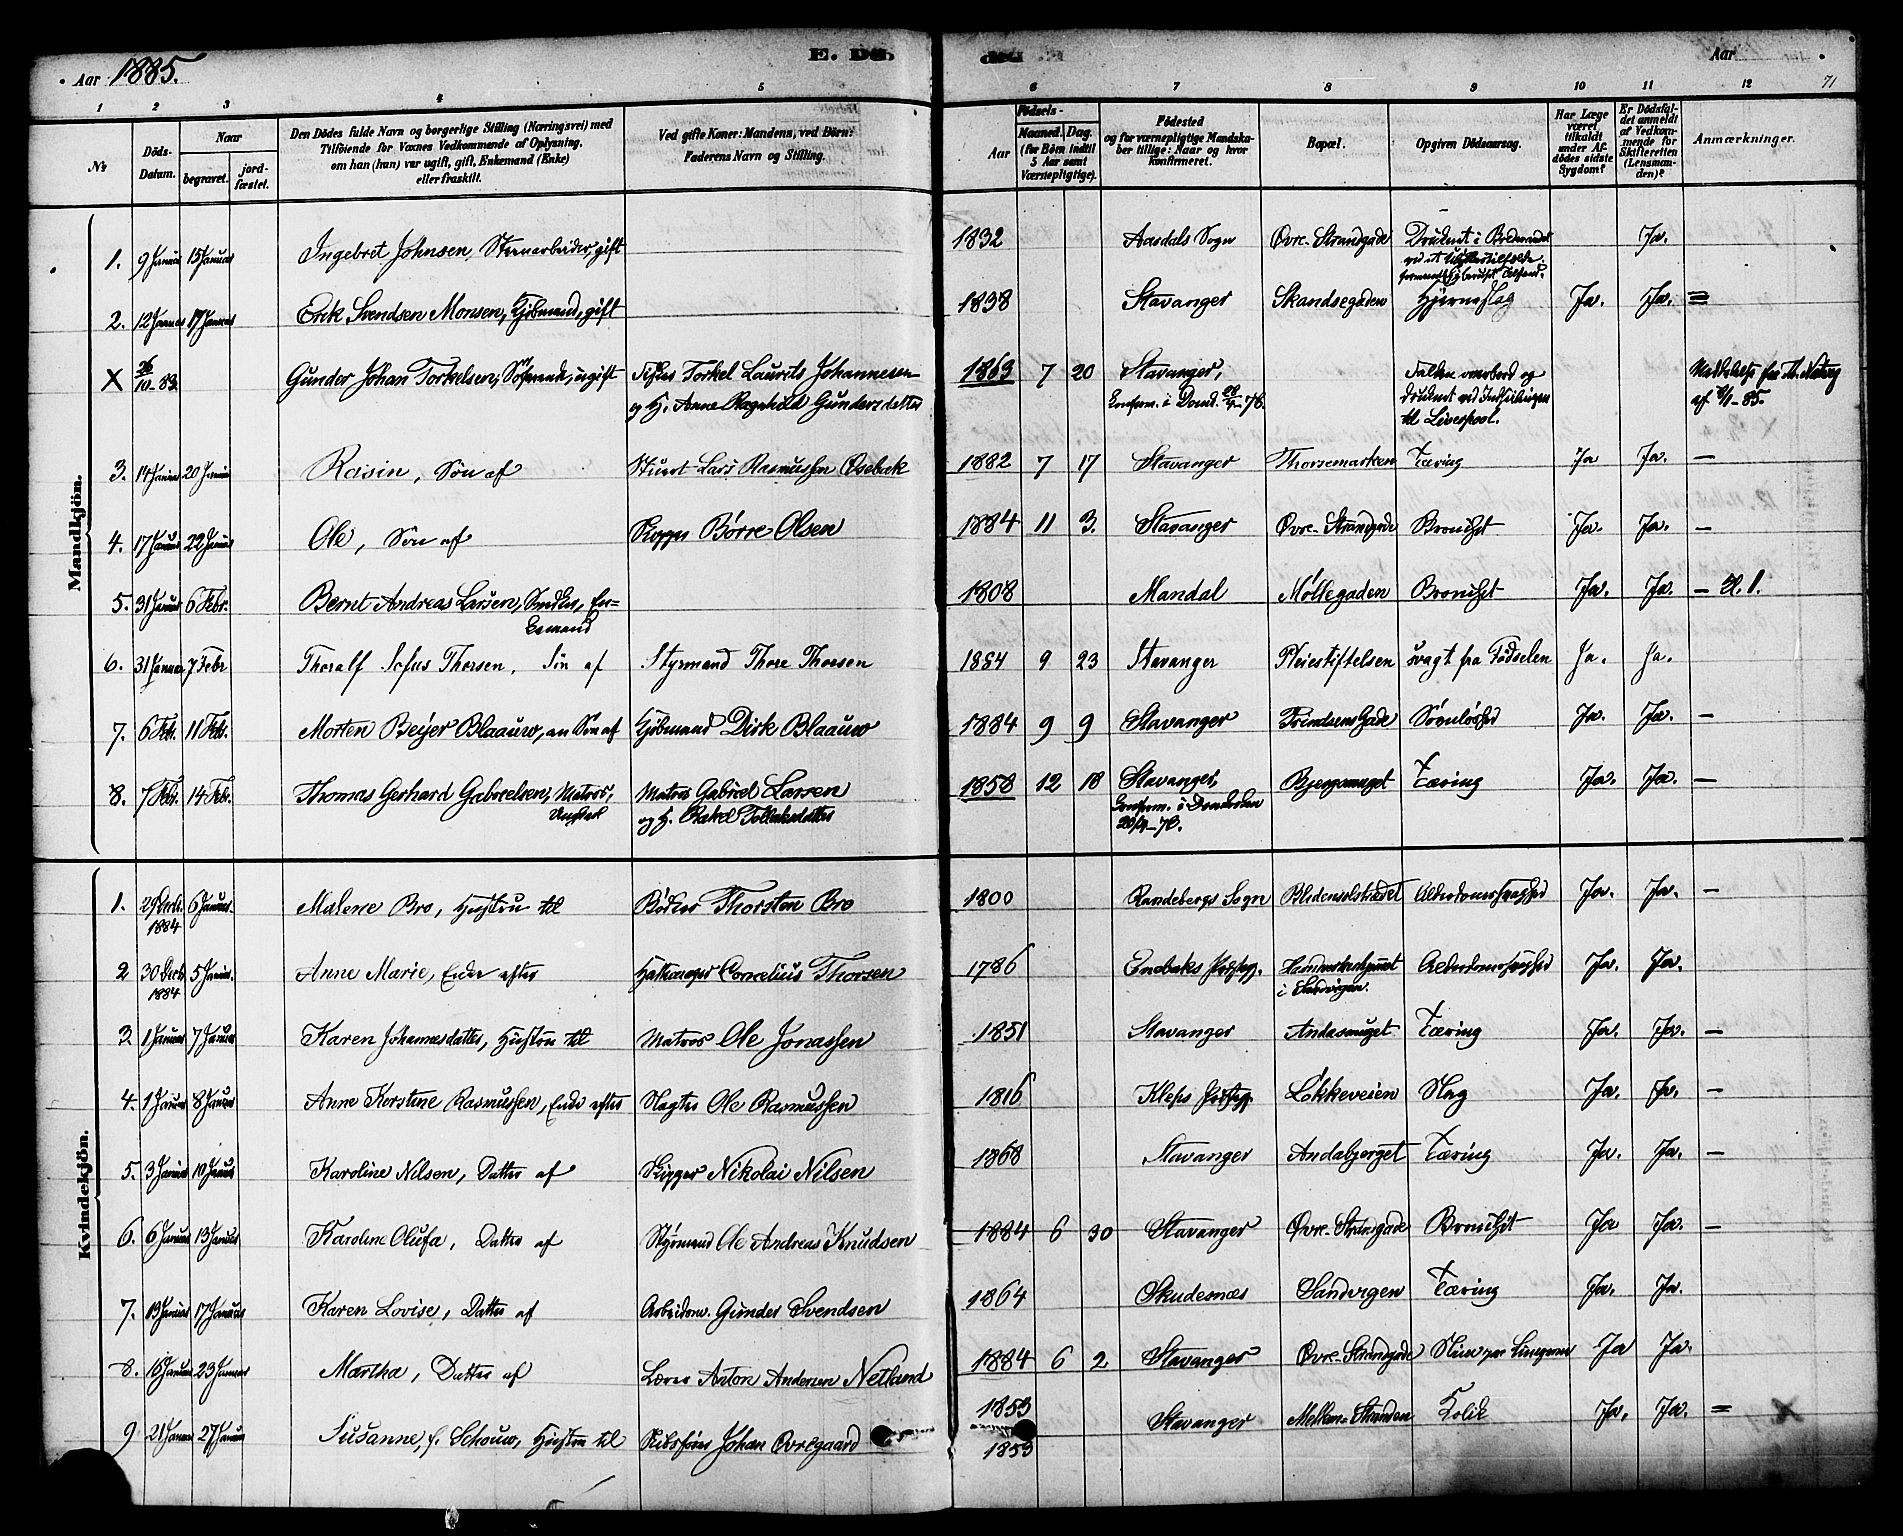 Aar 1885. E. Dø
Aar 71
1 2 3 4 5 6 7 8 9 10 11 12
No
Döds-Datum.
Naar
begravet.
jordfæstet.
Den Dödes fulde Navn og borgerlige Stilling (Næringsvei) med
Tilföiende for Voxnes Vedkommende af Oplysning,
om han (hun) var ugift, gift, Enkemand (Enke)
eller fraskilt.
Ved gifte Koner: Mandens, ved Börn:
Faderens Navn og Stilling.
Födsels-
Aar
Maaned. Dag.
(for Børn indtil
5 Aar samt
Værnepligtige).
Födested
og for værnepligtige Mandska-
ber tillige: Naar og hvor
konfirmeret.
Bopæl.
Opgiven Dödsaarsag.
Har Læge
været
tilkaldt
under Af-
dødes sidste
Sygdom?
Er Dödsfal-
det anmeldt
af Vedkom-
mende for
Skifteretten
(Lensman-
den)?
Anmærkninger.
Mandkjön.
1. 9 Januar 15 Januar Ingebret Johnsen, Stenarbeider, gift 1832 Aardals Sogn Øvre-Strandgade Druknet i Ja.
2. 12 Januar 17 Januar Erik Svendsen Monsen, Kjøbmand, gift 1838 Stavanger Skandsegaden Hjerneslag Ja. Ja. =
X 26/10-83. Gunder Johan Torkelsen, Sømand, ugift Torkel Laurits Johannesen 1863 7 20 Stavanger, Falden overbord og
og H. Anne Ragnhild Gundersdatter Konfirm. i Domk. 28/4-78. druknet ved Indseilingen af 9/1-85.
til Liverpool.
3. 14 Januar 20 Januar Rasin, Søn af Stuert Lars Rasmussen Osebak 1882 7 17 Stavanger Thorsemarken Tæring Ja Ja. –
4. 17 Januar 22 Januar Ole, Søn af Skipper Børre Olsen 1884 11 3. Stavanger Øvre-Strandgade Bronchit Ja. Ja. –
5. 31 Januar 6 Febr. Bernt Andreas Larsen, Snedker, En- 1808 Mandal Møllegaden Bronchit Ja. Ja. –
kemand
6. 31 Januar 7 Febr Thoralf Sofus Thorsen, Søn af Styrmand Thore Thorsen 1884 9 23 Stavanger Pleiestiftelsen svagt fra Fødselen Ja. Ja.
7. 6 Febr. 11 Febr. Morten Beijer Blaauw, en Søn af Kjøbmand Dirk Blaauw 1884 9 9 Stavanger Søvnløshed Ja. Ja. –
8. 7 Febr. 14 Febr. Thomas Gerhard Gabrielsen, Matros, Matros Gabriel Larsen 1858 12 18 Stavanger, Bjergsmuget Tæring Ja. Ja. –
Ungkarl og H. Rakel Tollaksdatter Konfirm. i Domkirken
Kvindekjön.
1. 29 Decb. 6 Januar. Malene Bro, Hustru til Bødker Thorsten Bro 1800 Randebergs Sogn Blidensolstrædet Alderdomssvaghed Ja. Ja. –
1884
2 30 Decb. 5 Januar. Anne Marie, Enke efter Hattemager Cornelius Thorsen 1786 Enebaks Præstegj. Alderdomssvaghed Ja. Ja.
1884 i Sandvigen.
3 1 Januar 7 Januar Karen Johannesdatter, Hustru til Matros Ole Jonassen 1851 Stavanger Andasmuget Tæring Ja. Ja. –
4. 1 Januar 8 Januar Anne Kerstine Rasmussen, Enke efter Slagter Ole Rasmussen 1816 Kleps Præstegj. Løkkeveien Slag Ja. Ja. –
5. 3 Januar 10 Januar Karoline Nilsen, Datter af Skipper Nikolai Nilsen 1868 Stavanger Andabjerget Tæring Ja. Ja. –
6. 6 Januar 13 Januar Karoline Olufa, Datter af Styrmand Ole Andreas Knudsen 1884 6 30 Stavanger Øvre-Strandgade Bronchit Ja Ja. –
7. 13 Januar 17 Januar Karen Lovise, Datter af Arbeidsm. Gunder Svendsen 1864 Skudesnæs Sandvigen Tæring Ja. Ja.
8. 16 Januar 23 Januar Martha, Datter af Lærer Anton Andersen Netland 1884 6 2 Stavanger Øvre-Strandgade Slim paa Lungerne Ja Ja.
9 21 Januar 27 Januar Susanne, f. Schouw, Hustru til Skibsfører Johan Ovregaard 1853 Stavanger Mellem-Stranden Kolik Ja. Ja. = X
1853